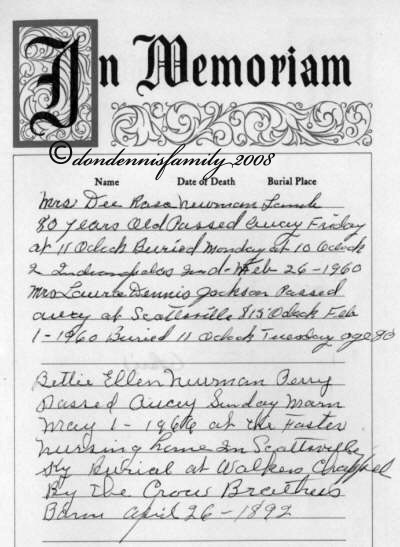 In Memoriam
© dondennisfamily 2008
Name Date of Death Burial Place
Mrs Dee Rosa Newman Lamb
80 years Old Passed Away Friday
at 11 Oclock Buried Monday at 10 Oclock
Indianapolis Ind - Feb 26 - 1960
Mrs Laura Dennis Jackson Passed
away at Scottsville 8 15 Oclock Feb
1 - 1960 Buried 11 Oclock Tuesday age 80
Bettie Ellen Newman Perry
Passed Away Sunday Morn
May 1 - 1966 at the Foster
Nursing home In Scottsville
Ky Burial at Walkers Chappel
By The Crow Brothers
Born April 26 - 1892